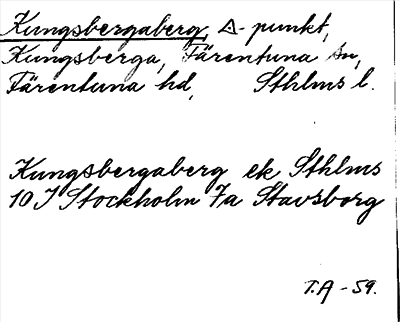 Kungsbergaberg, △-punkt,
Kungsberga, Färentuna sn,
Färentuna hd, Sthlms l.
Kungsbergaberg ek Sthlms
10 I Stockholm 7a Stavsborg
T.A -59.